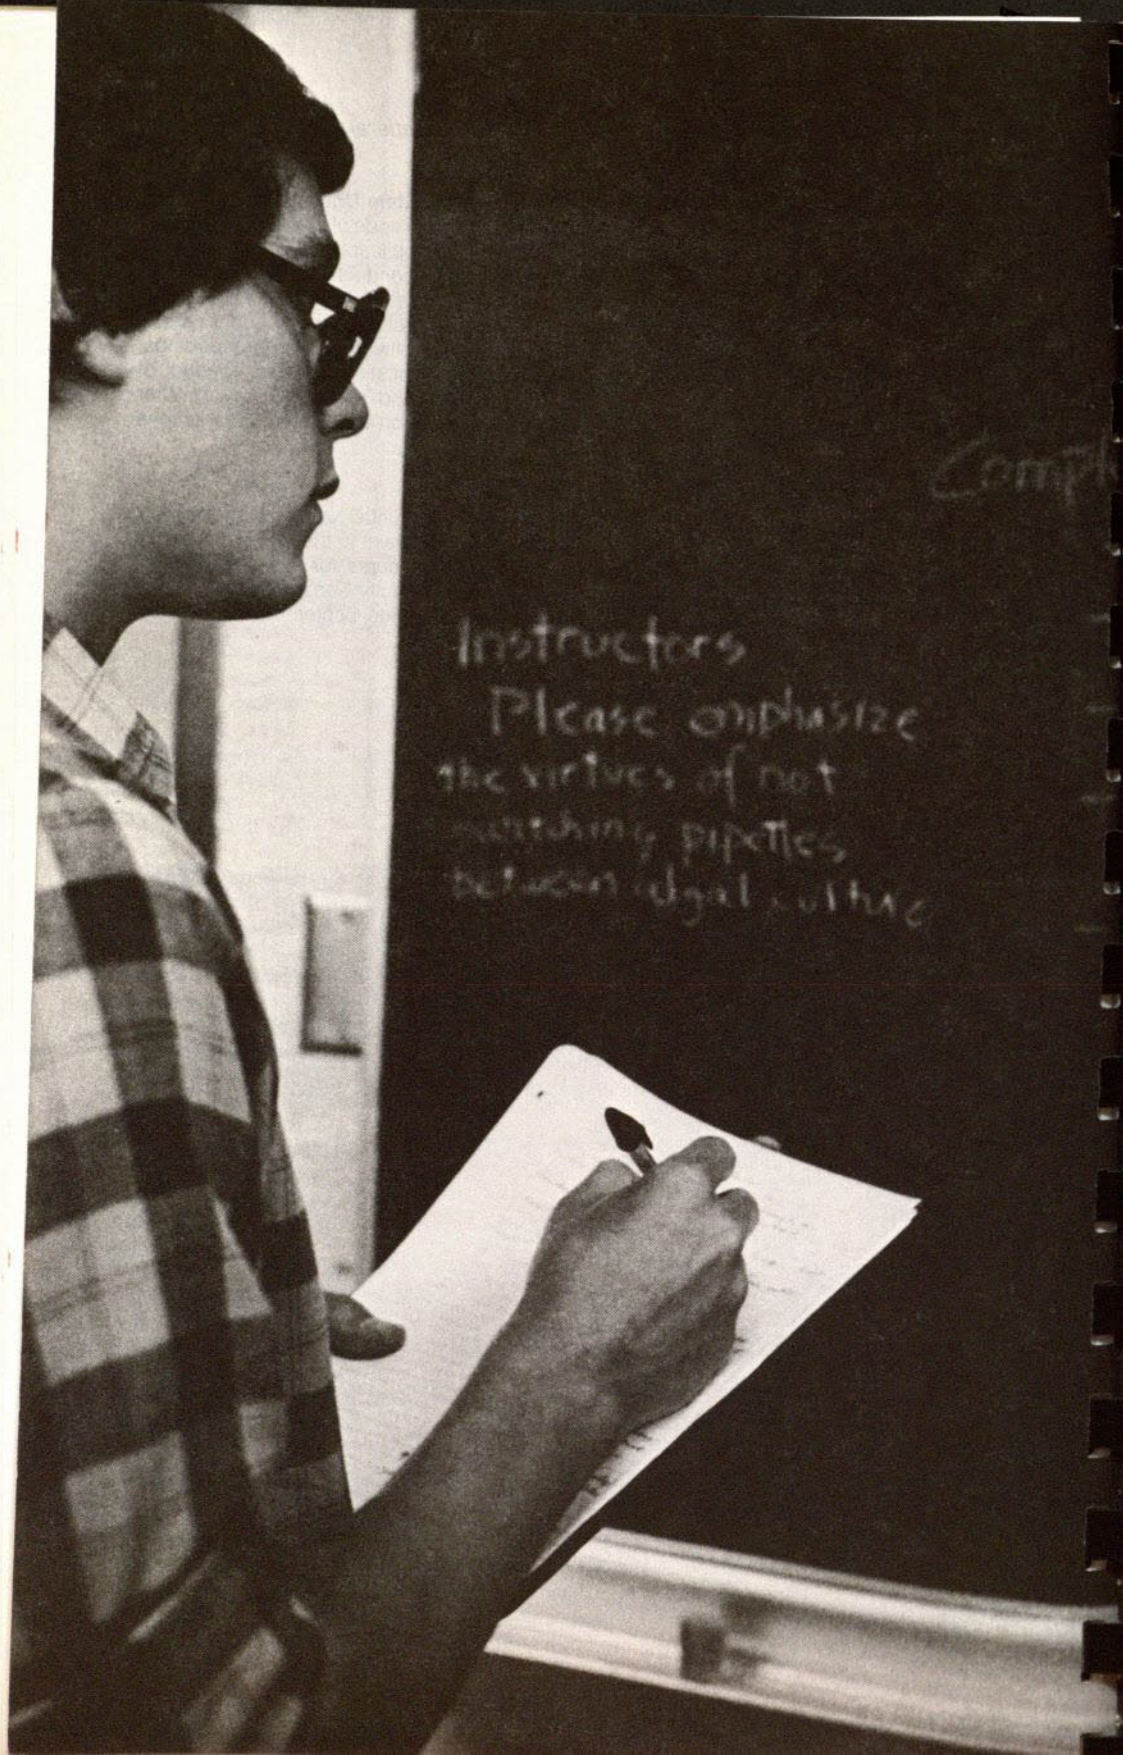 Compl
Instructors
Please emphasize
the virtues of not
switching pipettes
between algal culture